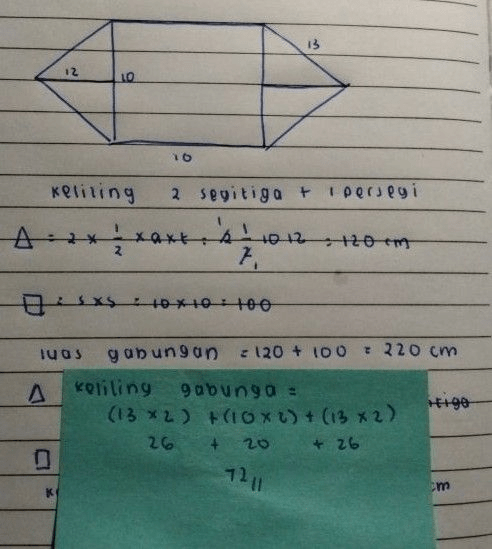 13
12
10
10
keliling 2 segitiga + 1 persegi
Δ = 2 × 1/2 × a × t = 2 1/2 10 12 = 120 cm
□ = s × s = 10 × 10 = 100
luas gabungan = 120 + 100 = 220 cm
Δ
keliling gabunga =
(13 × 2) + (10 × 2) + (13 × 2)
26 + 20 + 26
□
72 //
cm